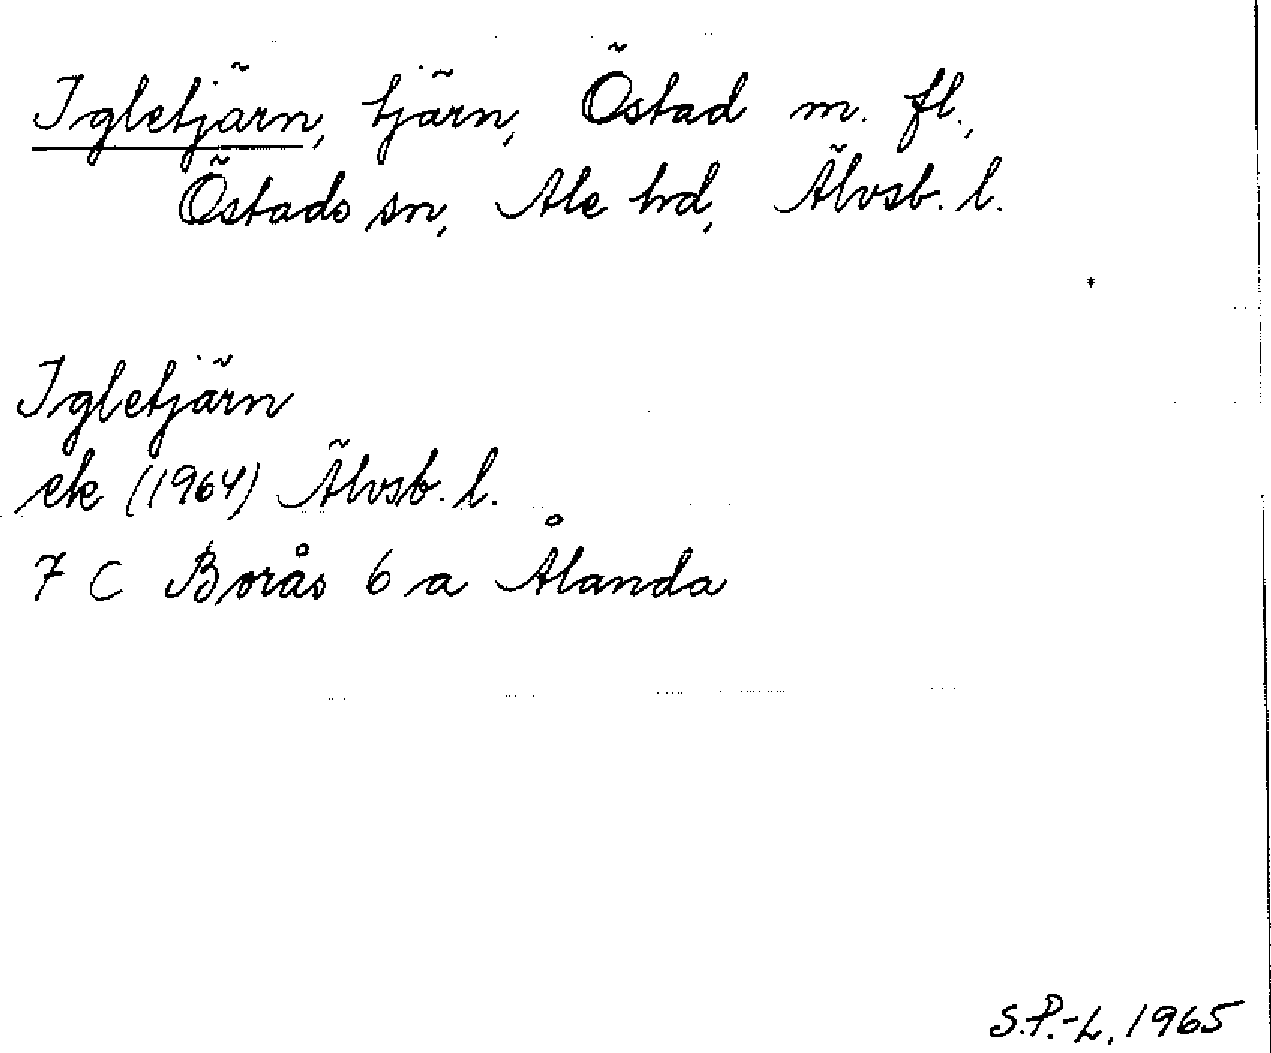 Igletjärn, tjärn, Östad m. fl.,
Östads sn, Ale hd, Älvsb. l.
Igletjärn
ek (1964) Älvsb. l.
7 C Borås 6 a Ålanda
S.P.-L. 1965